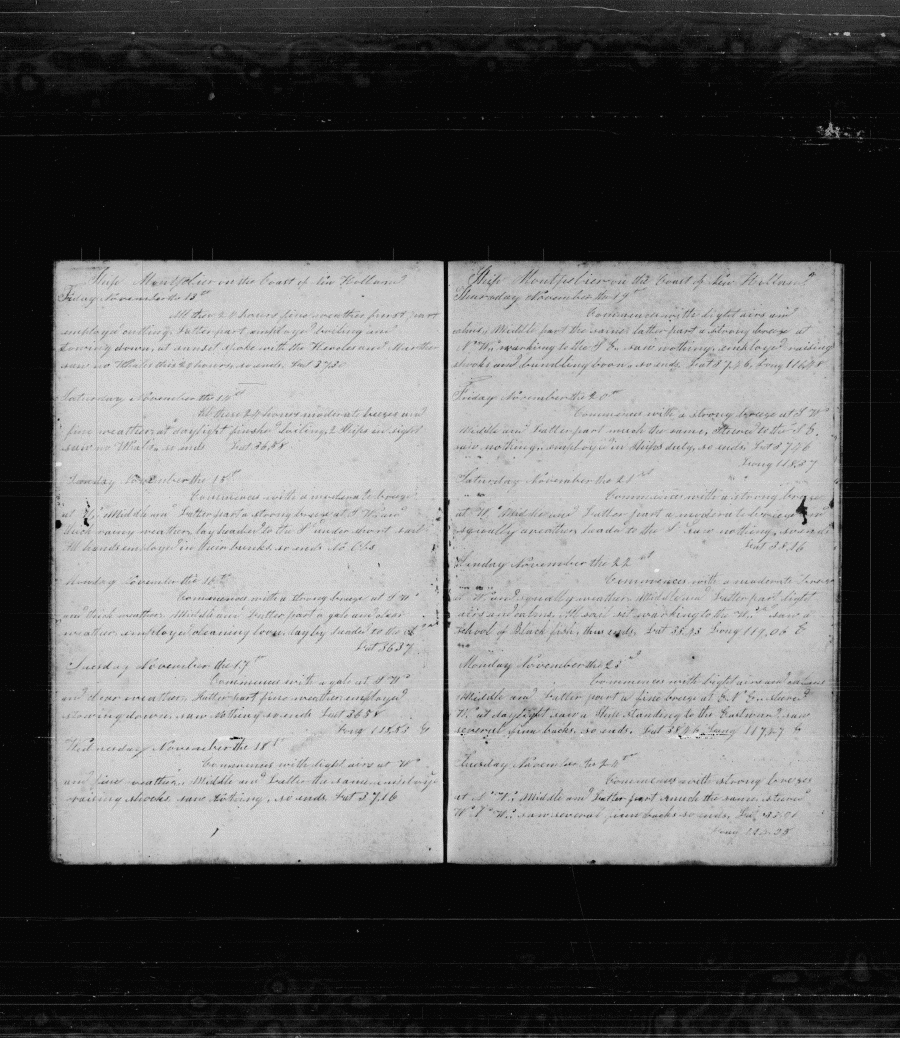 Ship Montpelier on the Coast of New Holland
Friday November the 13th
All these 24 hours fine weather first part
employd cutting, Latter part employd boiling and
stowing down, at sunset spoke with the Hercules and Marther
saw no Whales this 24 hours, so ends. Lat
Saturday November the 14th
All these 24 hours moderate breezes and
fine weather, at daylight finshd boiling, 2 Ships in sight
saw no Whals, so ends Lat 36.58
Sunday November the 15th
Commences with a moderate breeze
at Middle and Latter part a strong breeze at S W and
thick rainy weather, lay headed to the S under short sail
All hands employd in their bunks so ends No Obs
Monday November the 16th
Commences with a strong breeze at S W
and thick weather, Middle and Latter part a gale and
weather, employed cleaning bone, lay by headed to the S
Lat 36.37
Tuesday November the 17th
Commences with a gale at S W
and clear weather, Latter part fine weather employd
stowing down, saw nothing so ends Lat 36.58
Long 118.53 E
Wednesday November the 18th
Commences with light airs at W
and fine weather, Middle and Latter the same, employd
raising shooks saw nothing, so ends Lat 37.16
Ship Montpelier on the Coast of New Holland
Thursday November the 19th
Commences with light airs and
calms, Middle part the same, latter part a strong breeze at
N W, working to the S E, saw nothing, employd raising
shooks and bundling bone, so ends, Lat 37.46, Long
Friday November the 20th
Commences with a strong breeze at S W
Middle and Latter part much the same, Steered to the S E
saw nothing, employd in Ships duty, so ends, Lat 37.26
Long 118.37
Saturday November the 21st
Commences with a strong breeze
at W, Middle and Latter part a moderate breeze and
squally weather, heads to the S Saw nothing, so ends
Lat 38.16
Sunday November the 22
Commences with a moderate breeze
at W and squally weather, Middle and Latter part light
airs and calms, All sail set working to the W, saw a
School of Black fish, thus ends, Lat Long 119.05 E
Monday November the 23d
Commences with light airs and calms
Middle and Latter part a fine breeze at E N E, steered
W, at daylight saw a Ship standing to the Eastward, saw
several fin backs, so ends, Lat 38.46 Long 117.47 E
Tuesday November the 24th
Commences with strong breezes
at N W, Middle and Latter part much the same, steered
W N W, saw several fin backs so ends, Lat
Long